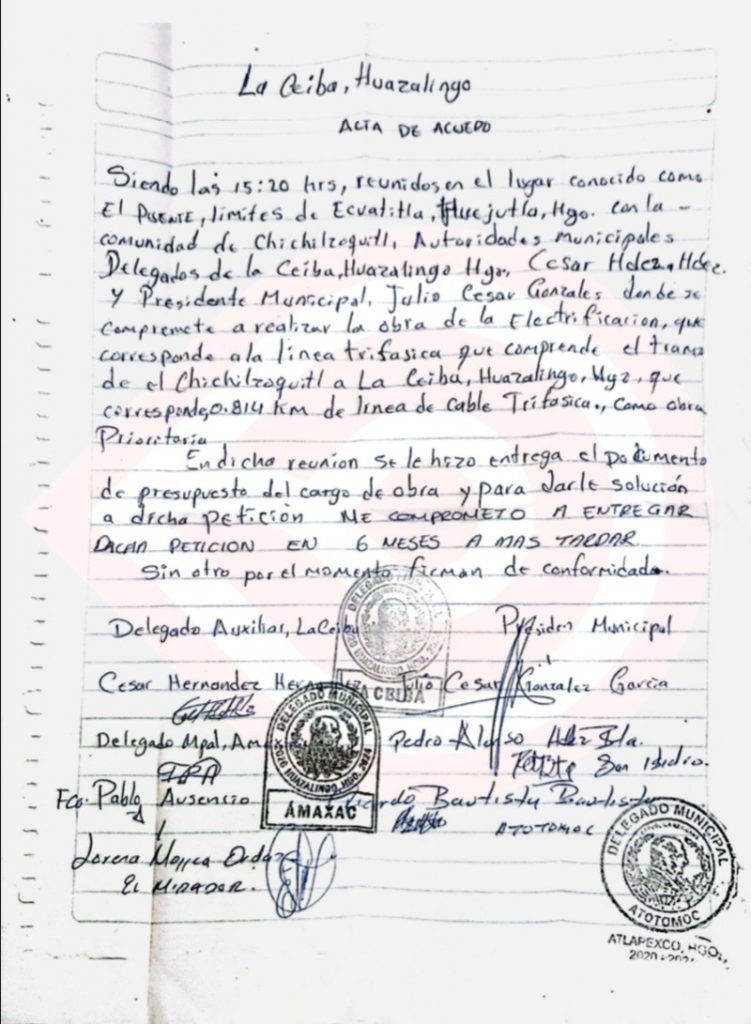 La Ceiba, Huazalingo
ACTA DE ACUERDO
Siendo las 15:20 hrs, reunidos en el lugar conocido como
El PUENTE, límites de Ecuatitla, Huejutla, Hgo. con la -
comunidad de Chichilzoquitl, Autoridades Municipales
Delegados de la Ceiba, Huazalingo Hgo, Cesar Hdez. Hdez.
y Presidente Municipal, Julio Cesar Gonzales donde se
compremete a realizar la obra de la Electrificacion, que
corresponde a la linea trifasica que comprende el tramo
de el Chichilzoquitl a La Ceiba, Huazalingo, Hgo, que
corresponde, 0.814 Km de linea de Cable Trifasica., como obra
Prioritaria
En dicha reunion se le hizo entrega el Documento
de presupuesto del cargo de obra y para darle solución
a dicha petición ME COMPROMETO A ENTREGAR
DICHA PETICION EN 6 MESES A MAS TARDAR
Sin otro por el momento firman de conformidad.
Delegado Auxiliar, La Ceiba
Presiden Municipal
Cesar Hernandez
Julio Cesar González García
LA CEIBA
Delegado Mpal, Amaxac
Pedro Alonso Hdez
San Isidro.
DELEGADO MUNICIPAL
HUAZALINGO, HGO.
AMAXAC
Fco. Pablo Ausencio
Bautista Bautista
ATOTOMOC
Lorena
EL MIRADOR.
DELEGADO MUNICIPAL
ATOTOMOC
ATLAPEXCO, HGO.